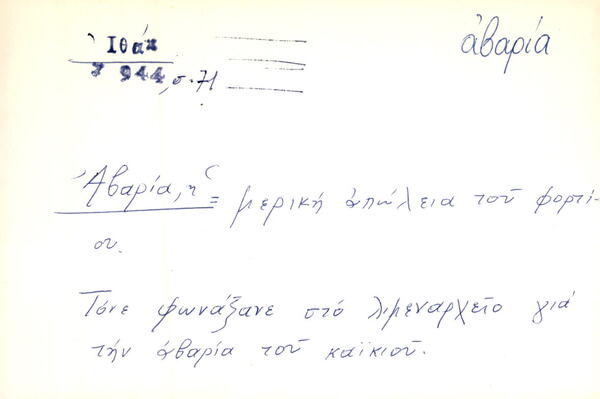 ἀβαρία
Ἰθάκ
944, σ. 71
Ἀβαρία, ἡ = μερική ἀπώλεια τοῦ φορτί-
ου.
Τόνε φωνάξανε στό λιμεναρχεῖο γιά
τήν ἀβαρία τοῦ καϊκιοῦ.